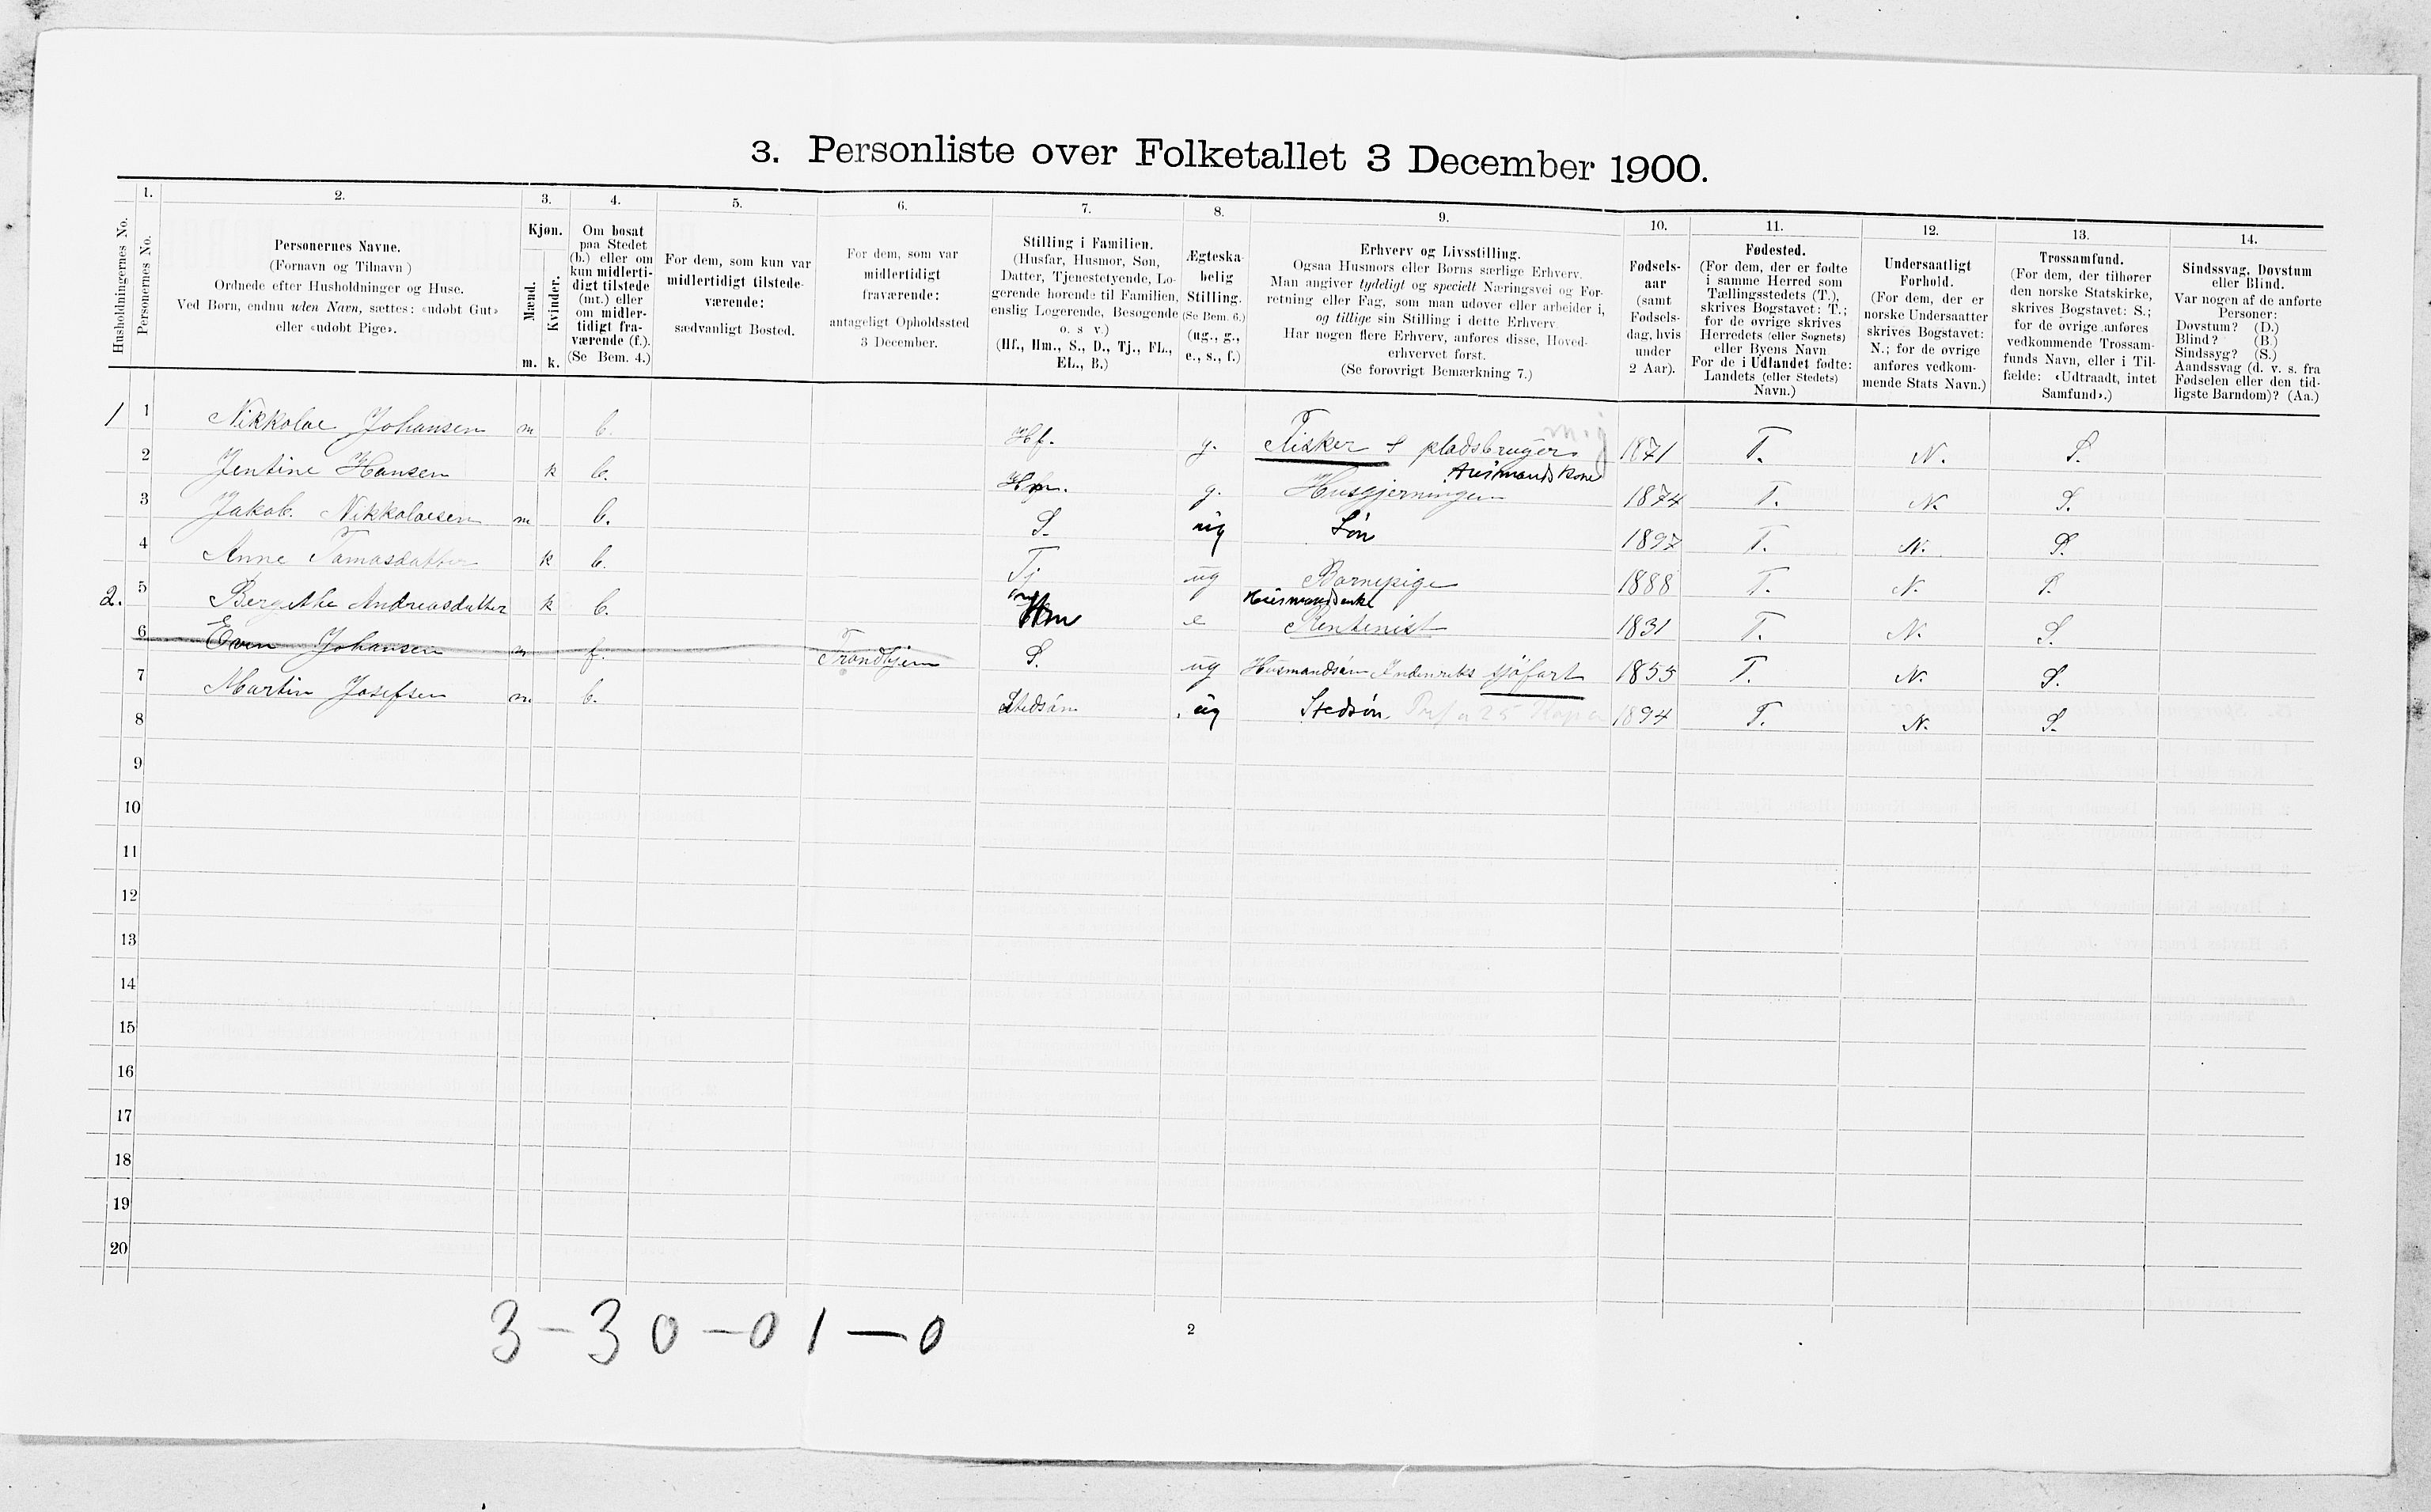 3. Personliste over Folketallet 3 December 1900.
1. 2. 3. 4. 5. 6. 7. 8. 9. 10. 11. 12. 13. 14.
Husholdningernes No.
Personernes No.
Personernes Navne.
(Fornavn og Tilnavn)
Ordnede efter Husholdninger og Huse.
Ved Børn, endnu uden Navn, sættes: «udøbt Gut»
eller «udøbt Pige».
Kjøn.
Mænd.
Kvinder.
m. k.
Om bosat
paa Stedet
(b.) eller om
kun midlerti-
digt tilstede
(mt.) eller
om midler-
tidigt fra-
værende (f.).
(Se Bem. 4.)
For dem, som kun var
midlertidigt tilstede-
værende:
sædvanligt Bosted.
For dem, som var
midlertidigt
fraværende:
antageligt Opholdssted
3 December.
Stilling i Familien.
(Husfar, Husmor, Søn,
Datter, Tjenestetyende, Lo-
gerende hørende til Familien,
enslig Logerende, Besøgende
o. s v.)
(Hf., Hm., S., D., Tj., FL.,
EL., B.)
Ægteska-
belig
Stilling.
(Se Bem. 6.)
(ug., g.,
e., s., f.)
Erhverv og Livsstilling.
Ogsaa Husmors eller Børns særlige Erhverv.
Man angiver tydeligt og specielt Næringsvei og For-
retning eller Fag, som man udøver eller arbeider i,
og tillige sin Stilling i dette Erhverv
Har nogen flere Erhverv, anføres disse, Hoved-
erhvervet først.
(Se forøvrigt Bemærkning 7.)
Fødsels-
aar
(samt
Fødsels-
dag, hvis
under
2 Aar).
Fødested.
(For dem, der er fødte
i samme Herred som
Tællingsstedets (T.),
skrives Bogstavet: T.;
for de øvrige skrives
Herredets (eller Sognets)
eller Byens Navn
For de i Udlandet fødte:
Landets (eller Stedets)
Navn.)
Undersaatligt
Forhold.
(For dem, der er
norske Undersaatter
skrives Bogstavet:
N.; for de øvrige
anføres vedkom-
mende Stats Navn.)
Trossamfund.
(For dem, der tilhører
den norske Statskirke,
skrives Bogstavet: S.;
for de øvrige anføres
vedkommende Trossam-
funds Navn, eller i Til-
fælde: «Udtraadt, intet
Samfund».)
Sindssvag, Døvstum
eller Blind.
Var nogen af de anførte
Personer:
Døvstum? (D.)
Blind? (B.)
Sindssyg? (S.)
Aandssvag (d. v. s. fra
Fødselen eller den tid-
ligste Barndom)? (Aa.)
1 1 Nikkolae Johansen m b. Hf. g. Fisker & pladsbruger 1871 T. N. S.
2 Jentine Hansen k b. Hm. g. Husgjerningen Husmands Kone 1874 T. N. S.
3 Jakob. Nikkolaisen m b. S. ug Søn 1897 T. N. S.
4 Anne Tomasdatter k b. Tj ug Barnepige 1888 T. N. S.
2. 5 Bergithe Andreasdatter k b. Hm e Husmandsenke Rentenist 1831 T. N. S.
6 Even Johansen m f. Trondhjem S. ug Husmandsøn Indenriks sjøfart 1855 T. N. S.
7 Martin Josefsen m. b. Stedsøn ug Stedsøn 1894 T. N. S.
8
9
10
11
12
13
14
15
16
17
18
19
20
3-30-01-0
2